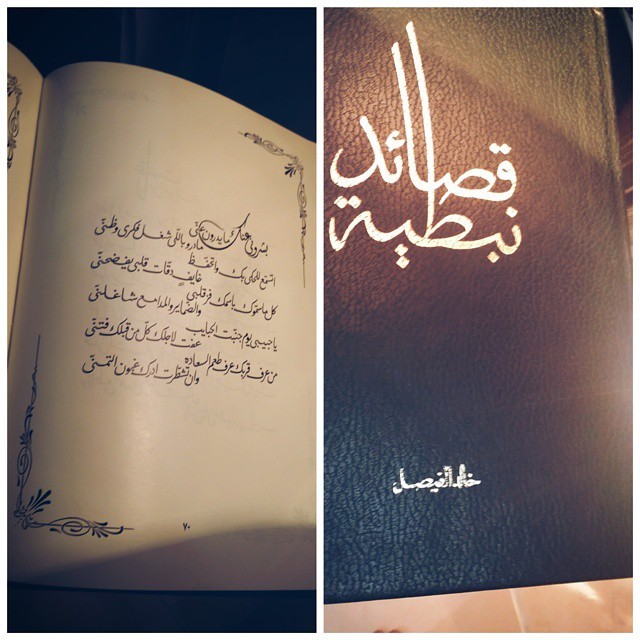 عنك مايدرون عنّي
مادروا باللّي شغل فكري وظنّي
استمع للحكي بك واتحفّظ
خايفٍ دقات قلبي يفضحنّي
كل ماسمّوك باسمك فز قلبي
والضماير والمدامع شاغلنّي
يا حبيبي يوم
عفت لاجلك كلّ من قبلك فتنّي
من عرف قربك عرف طعم السعاده
وان ادرك غصون التمنّي
٧٠
قصائد
نبطية
خالد الفيصل